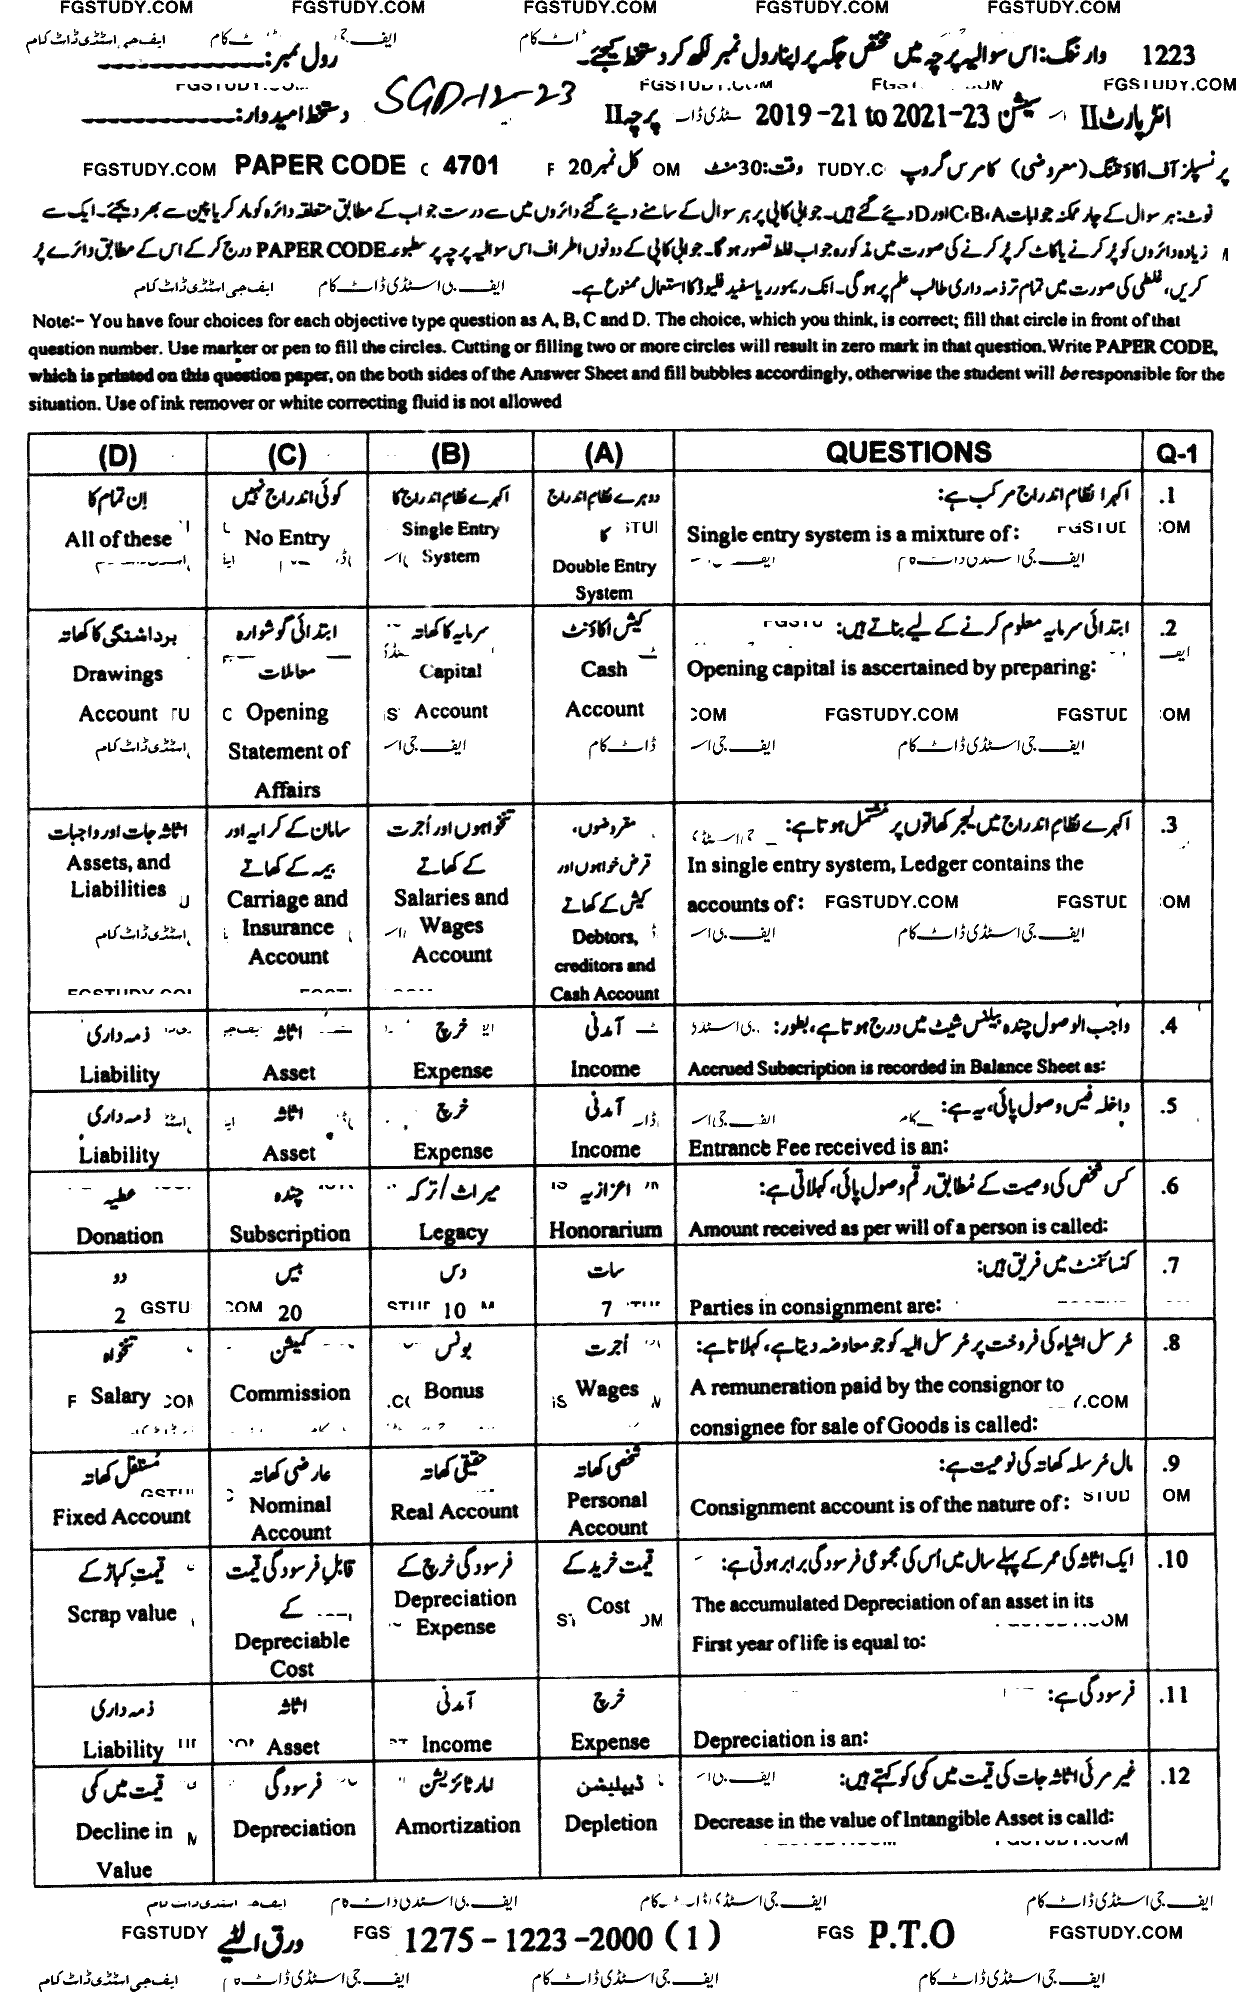 FGSTUDY.COM FGSTUDY.COM FGSTUDY.COM FGSTUDY.COM FGSTUDY.COM
1223 وارننگ: اس سوالیہ پرچہ میں مختص جگہ پر اپنا رول نمبر لکھ کر دستخط کیجئے۔ رول نمبر:
SGD-12-23
انٹر پارٹ II سیشن 2019-21 to 2021-23 پرچہ II دستخط امیدوار:
پرنسپلز آف اکاؤنٹنگ (معروضی) کامرس گروپ وقت: 30 منٹ کل نمبر 20 PAPER CODE 4701 FGSTUDY.COM
نوٹ: ہر سوال کے چار ممکنہ جوابات A، B، C اور D دیئے گئے ہیں۔ جوابی کاپی پر ہر سوال کے سامنے دیئے گئے دائروں میں سے درست جواب کے مطابق متعلقہ دائرہ کو مارکر یا پین سے بھر دیجئے۔ ایک سے
زیادہ دائروں کو پُر کرنے یا کاٹ کر پُر کرنے کی صورت میں مذکورہ جواب غلط تصور ہو گا۔ جوابی کاپی کے دونوں اطراف اس سوالیہ پرچہ پر مطبوعہ PAPER CODE درج کر کے اس کے مطابق دائرے پُر
کریں، غلطی کی صورت میں تمام تر ذمہ داری طالب علم پر ہوگی۔ انک ریموور یا سفید فلیوڈ کا استعمال ممنوع ہے۔
Note:- You have four choices for each objective type question as A, B, C and D. The choice, which you think, is correct; fill that circle in front of that
question number. Use marker or pen to fill the circles. Cutting or filling two or more circles will result in zero mark in that question. Write PAPER CODE,
which is printed on this question paper, on the both sides of the Answer Sheet and fill bubbles accordingly, otherwise the student will be responsible for the
situation. Use of ink remover or white correcting fluid is not allowed
(D) (C) (B) (A) QUESTIONS Q-1
.1 اکہرا نظام اندراج مرکب ہے:
Single entry system is a mixture of:
دوہرے نظام اندراج کا
Double Entry System
اکہرے نظام اندراج کا
Single Entry System
کوئی اندراج نہیں
No Entry
اِن تمام کا
All of these
.2 ابتدائی سرمایہ معلوم کرنے کے لیے بناتے ہیں:
Opening capital is ascertained by preparing:
کیش اکاؤنٹ
Cash Account
سرمایہ کا کھاتہ
Capital Account
ابتدائی گوشوارہ معاملات
Opening Statement of Affairs
برداشتگی کا کھاتہ
Drawings Account
FGSTUDY.COM
.3 اکہرے نظام اندراج میں لیجر کھاتوں پر مشتمل ہوتا ہے:
In single entry system, Ledger contains the
accounts of: FGSTUDY.COM
مقروضوں، قرض خواہوں اور کیش کے کھاتے
Debtors, creditors and Cash Account
تنخواہوں اور اُجرت کے کھاتے
Salaries and Wages Account
سامان کے کرایہ اور بیمہ کے کھاتے
Carriage and Insurance Account
اثاثہ جات اور واجبات
Assets, and Liabilities
.4 واجب الوصول چندہ بیلنس شیٹ میں درج ہوتا ہے، بطور:
Accrued Subscription is recorded in Balance Sheet as:
آمدنی
Income
خرچ
Expense
اثاثہ
Asset
ذمہ داری
Liability
.5 داخلہ فیس وصول پائی، یہ ہے:
Entrance Fee received is an:
آمدنی
Income
خرچ
Expense
اثاثہ
Asset
ذمہ داری
Liability
.6 کس شخص کی وصیت کے مطابق رقم وصول پائی، کہلاتی ہے:
Amount received as per will of a person is called:
اعزازیہ
Honorarium
میراث/ترکہ
Legacy
چندہ
Subscription
عطیہ
Donation
.7 کنسائمنٹ میں فریق ہیں:
Parties in consignment are:
سات
7
دس
10
بیس
20
دو
2
.8 مرسل اشیاء کی فروخت پر مرسل الیہ کو جو معاوضہ دیتا ہے، کہلاتا ہے:
A remuneration paid by the consignor to
consignee for sale of Goods is called:
اُجرت
Wages
بونس
Bonus
کمیشن
Commission
تنخواہ
Salary
.9 مال مرسلہ کھاتہ کی نوعیت ہے:
Consignment account is of the nature of:
شخصی کھاتہ
Personal Account
حقیقی کھاتہ
Real Account
عارضی کھاتہ
Nominal Account
مستقل کھاتہ
Fixed Account
.10 ایک اثاثہ کی عمر کے پہلے سال میں اُس کی مجموعی فرسودگی برابر ہوتی ہے:
The accumulated Depreciation of an asset in its
First year of life is equal to:
قیمت خرید کے
Cost
فرسودگی خرچ کے
Depreciation Expense
قابل فرسودگی قیمت کے
Depreciable Cost
قیمت کباڑ کے
Scrap value
.11 فرسودگی ہے:
Depreciation is an:
خرچ
Expense
آمدنی
Income
اثاثہ
Asset
ذمہ داری
Liability
.12 غیر مرئی اثاثہ جات کی قیمت میں کمی کو کہتے ہیں:
Decrease in the value of Intangible Asset is calld:
ڈیپلیشن
Depletion
امارٹائزیشن
Amortization
فرسودگی
Depreciation
قیمت میں کمی
Decline in Value
ایف جی اسٹڈی ڈاٹ کام
FGSTUDY ورق الٹیے FGS 1275-1223-2000 (1) FGS P.T.O FGSTUDY.COM
ایف جی اسٹڈی ڈاٹ کام ایف جی اسٹڈی ڈاٹ کام ایف جی اسٹڈی ڈاٹ کام ایف جی اسٹڈی ڈاٹ کام